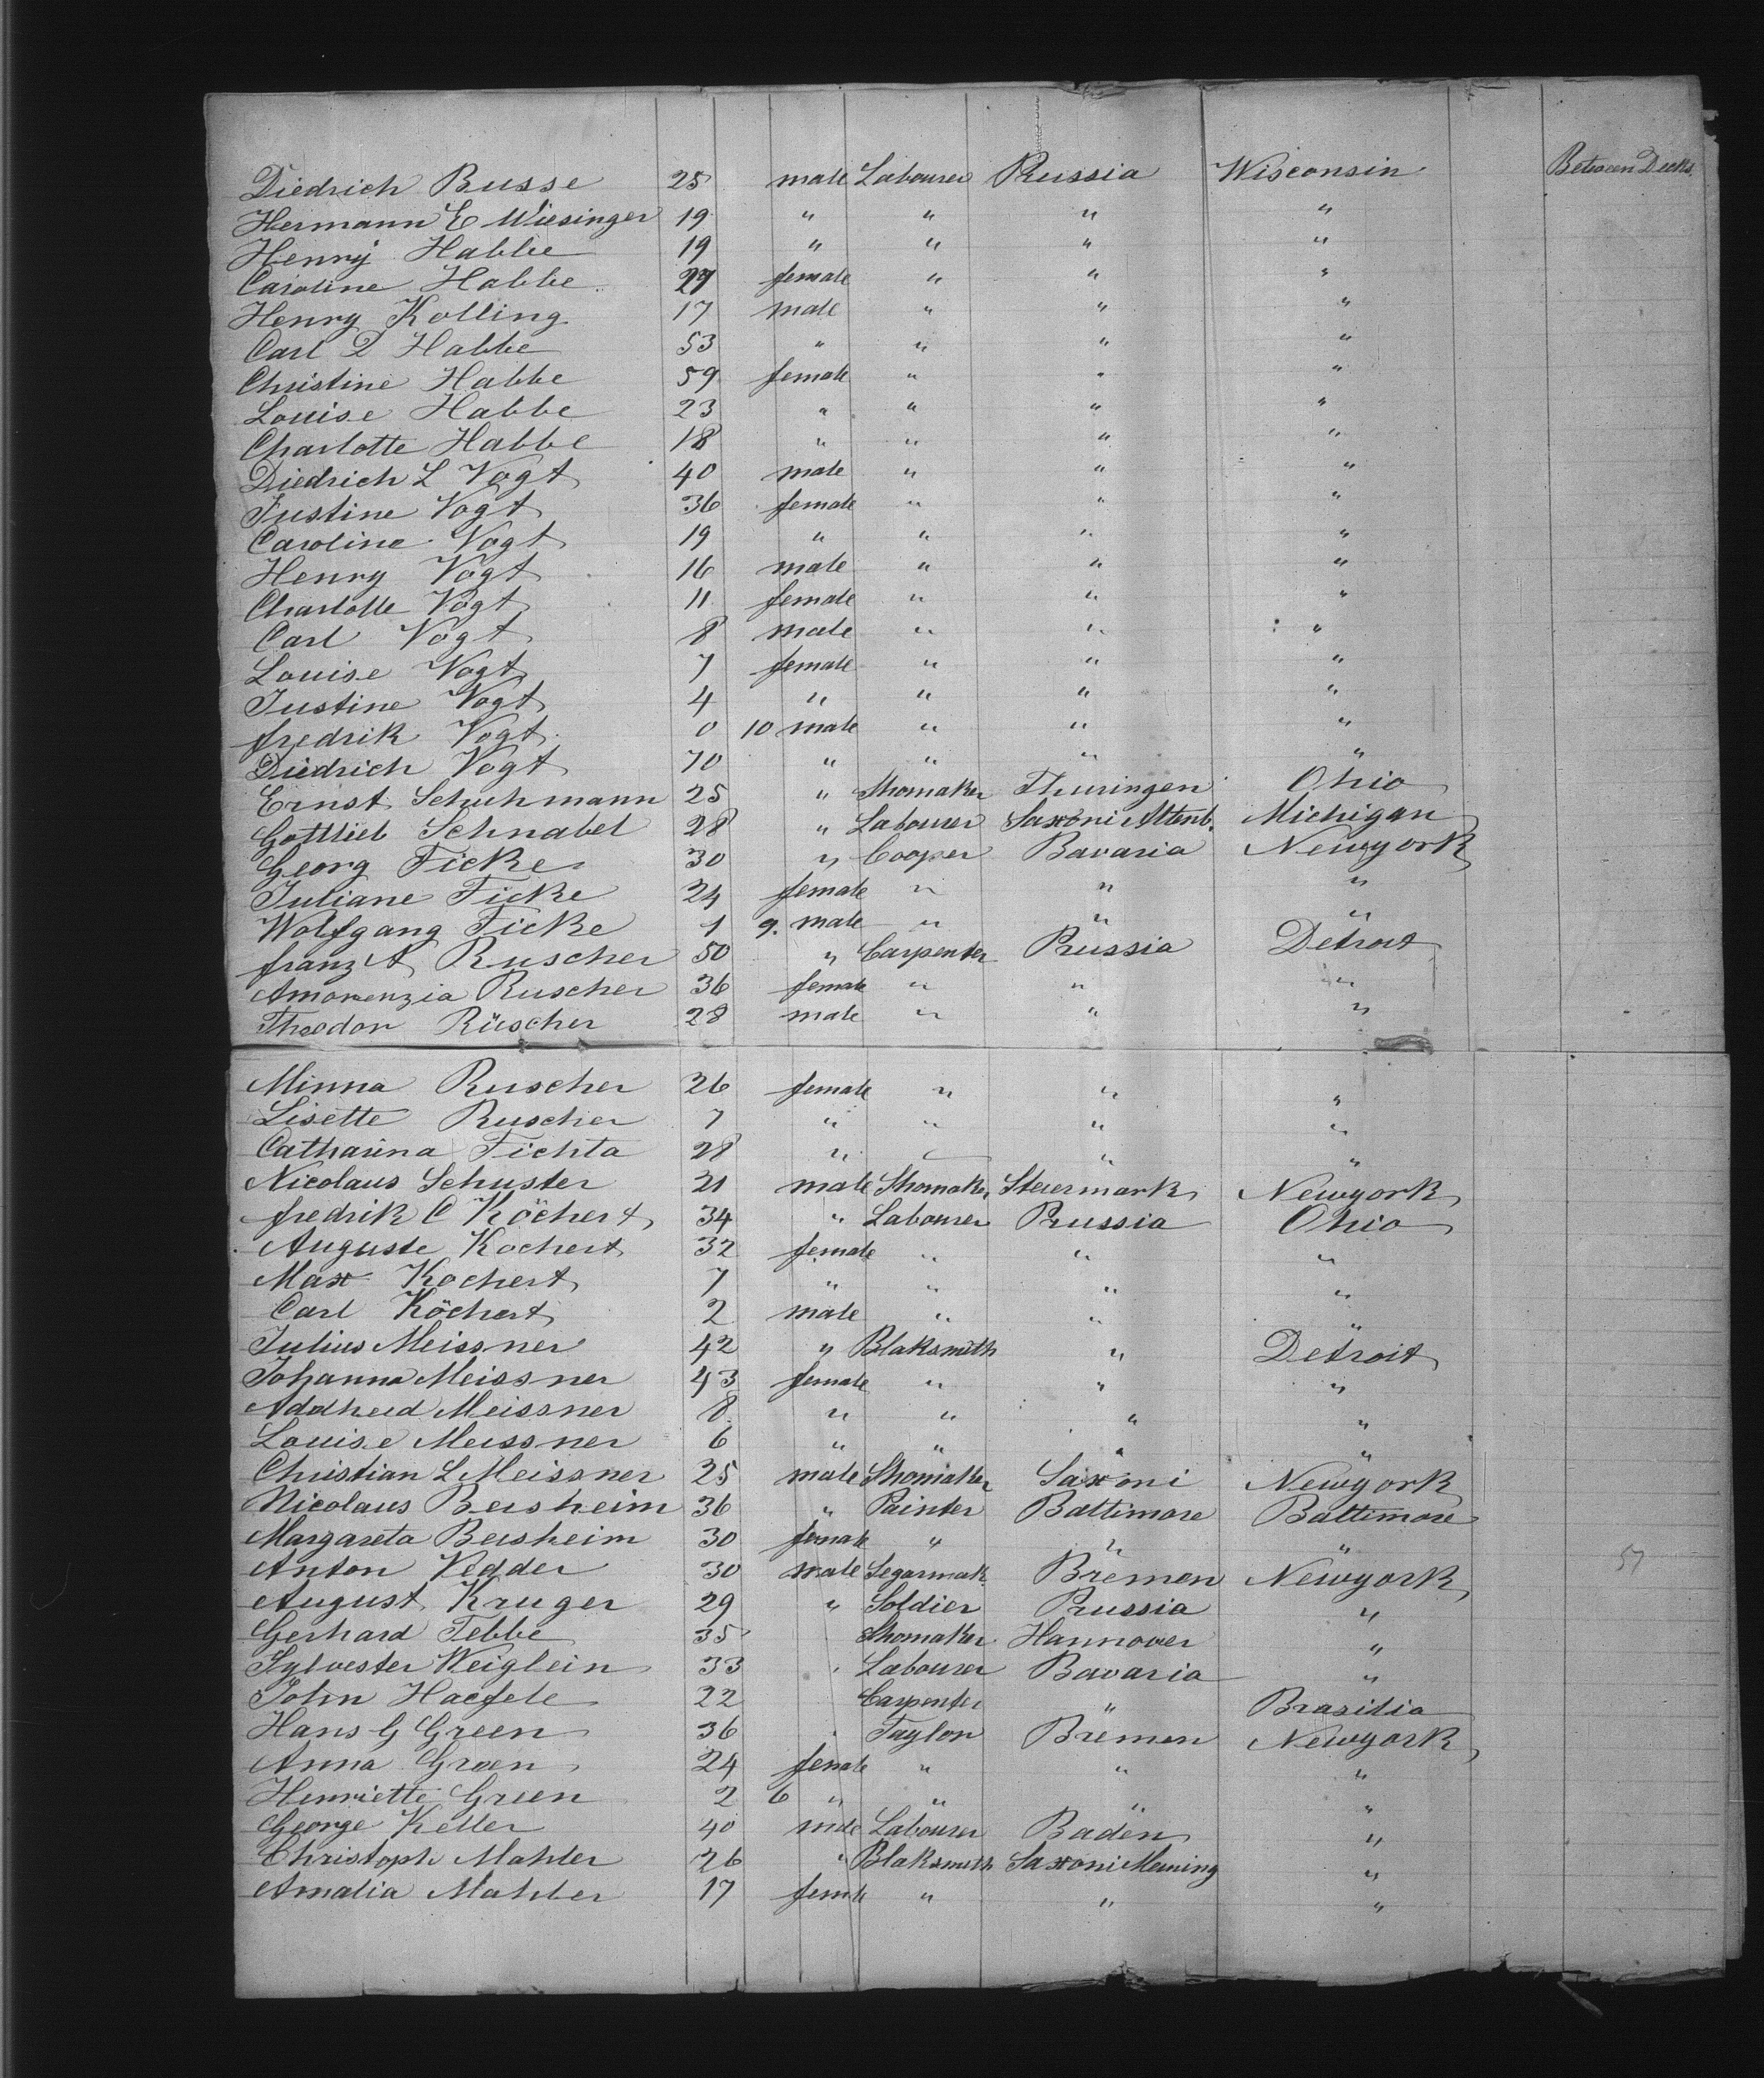 Diedrich Busse 25 male Labourer Prussia Wisconsin Between Decks
Hermann E Wiesinger 19 " " " "
Henry Habbe 19 " " " "
Caroline Habbe 27 female " " "
Henry Kolling 17 male " " "
Carl D Habbe 53 " " " "
Christine Habbe 59 female " " "
Louise Habbe 23 " " " "
Charlotte Habbe 18 " " " "
Diedrich L Vogt 40 male " " "
Justine Vogt 36 female " " "
Caroline Vogt 19 " " " "
Henry Vogt 16 male " " "
Charlotte Vogt 11 female " " "
Carl Vogt 8 male " " "
Louise Vogt 7 female " " "
Justine Vogt 4 " " " "
fredrik Vogt 0 10 male " " "
Diedrich Vogt 70 " " " "
Ernst Schuhmann 25 " Shomaker Thuringen Ohio
Gottlieb Schnabel 28 " Labourer Saxoni Altenb. Michigan
Georg Ficke 30 " Cooper Bavaria Newyork
Juliane Ficke 24 female " " "
Wolfgang Ficke 1 9. male " " "
franz A Ruscher 50 " Carpenter Prussia Detroit
Amorenzia Ruscher 36 female " " "
Theodor Rüscher 28 male " " "
Minna Ruscher 26 female " " "
Lisette Ruscher 7 " " " "
Catharina Fichta 28 " " " "
Nicolaus Schuster 21 male Shomaker Steiermark Newyork
fredrik C Köchert 34 " Labourer Prussia Ohio
Auguste Kochert 32 female " " "
Max Kochert 7 " " " "
Carl Köchert 2 male " " "
Julius Meissner 42 " Blaksmith " Detroit
Johanna Meissner 43 female " " "
Adelheid Meissner 8 " " " "
Louise Meissner 6 " " " "
Christian L Meissner 25 male Shomaker Saxoni Newyork
Nicolaus Beisheim 36 " Painter Baltimore Baltimore
Margareta Beisheim 30 female " " "
Anton Vedder 30 male Segarmak. Bremen Newyork 57
August Kruger 29 " Soldier Prussia "
Gerhard Tebbe 35 Shomaker Hannover "
Sylvester Weiglein 33 " Labourer Bavaria "
John Haefele 22 Carpenter " Brasilia
Hans G Green 36 " Taylor Bremen Newyork
Anna Green 24 female " " "
Henriette Green 2 6 " " " "
George Keller 40 male Labourer Baden "
Christoph Mahler 26 " Blaksmith Saxoni Meining "
Amalia Mahler 17 female " " "